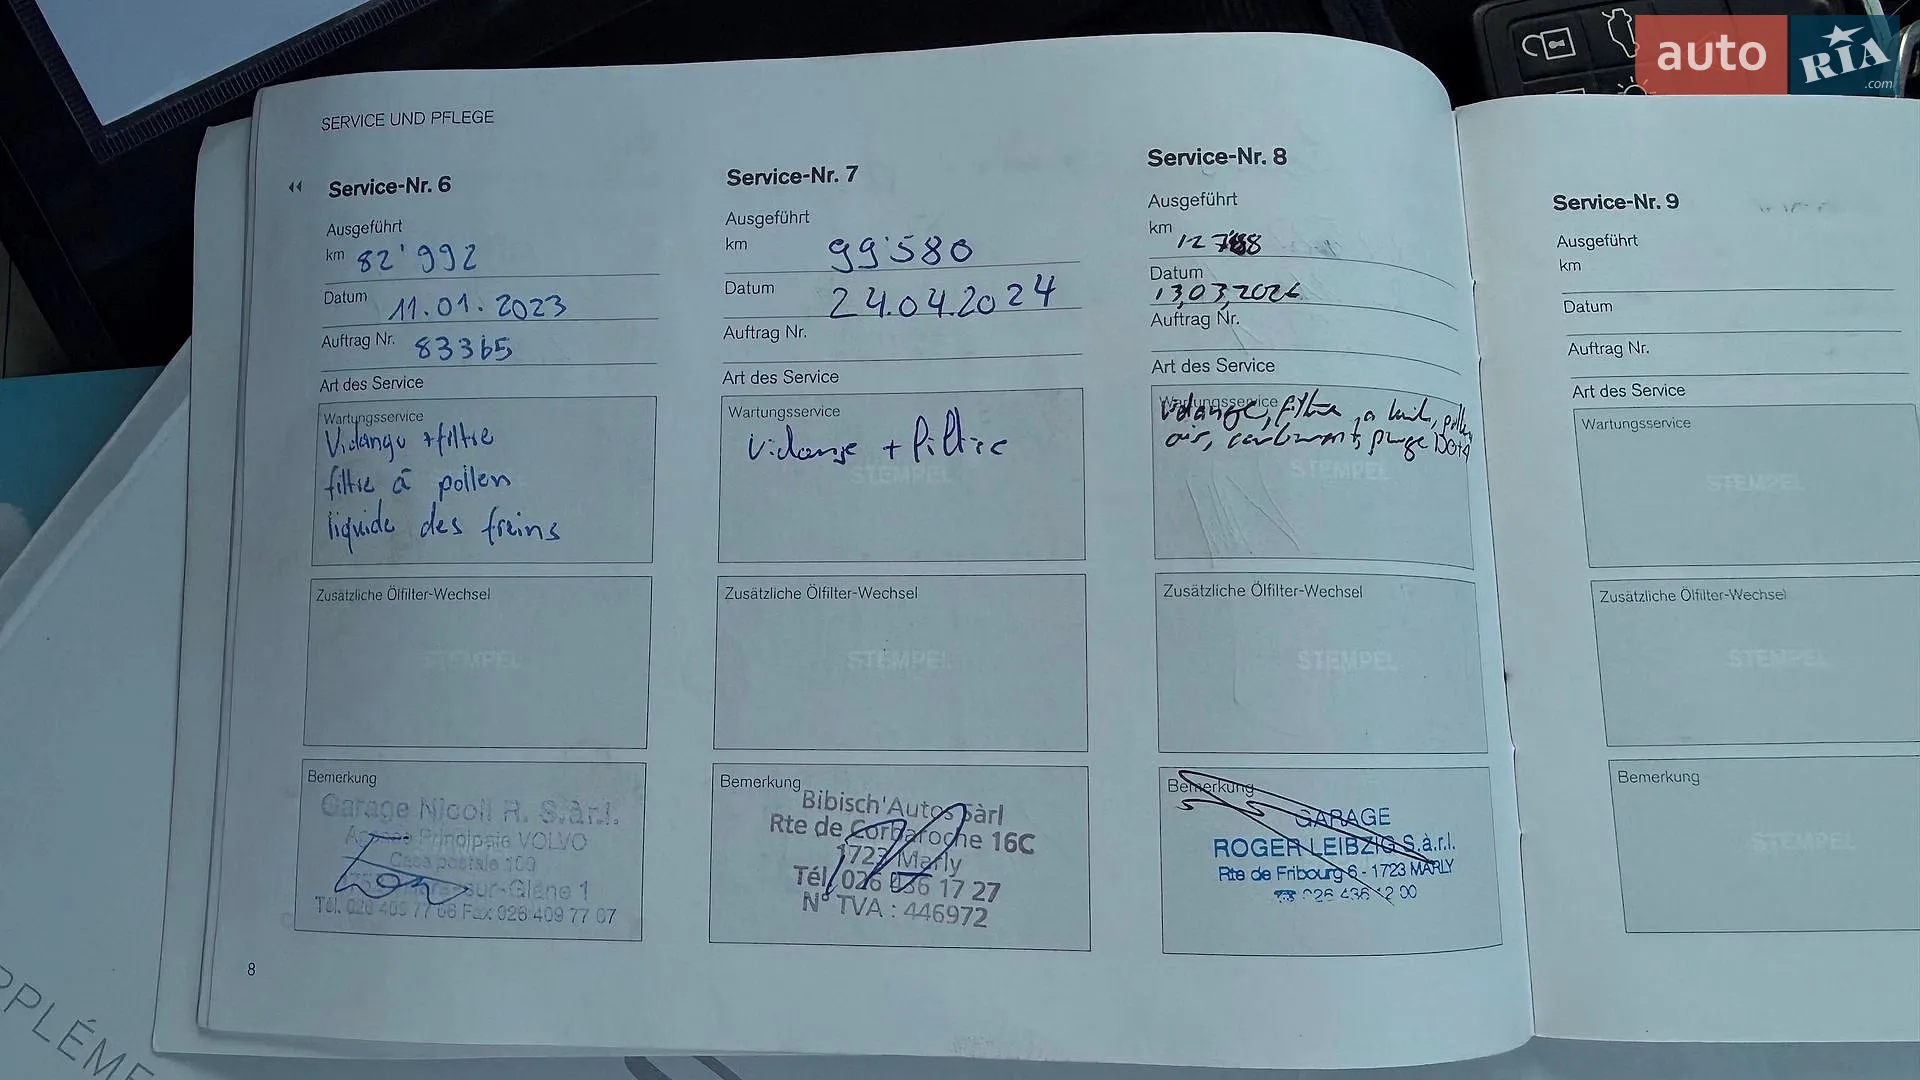 auto RIA.com
SERVICE UND PFLEGE
Service-Nr. 6
Ausgeführt
km 82'992
Datum 11.01.2023
Auftrag Nr. 83365
Art des Service
Wartungsservice
Vidange +filtre
filtre à pollen
liquide des freins
STEMPEL
Zusätzliche Ölfilter-Wechsel
STEMPEL
Bemerkung
Garage Nicoli R. S.à.r.l.
Agence Principale VOLVO
Case postale 109
sur-Glâne 1
Tél. 026 409 77 66 Fax 026 409 77 07
8
Service-Nr. 7
Ausgeführt
km 99'580
Datum 24.04.2024
Auftrag Nr.
Art des Service
Wartungsservice
Vidange + filtre
STEMPEL
Zusätzliche Ölfilter-Wechsel
STEMPEL
Bemerkung
Bibisch'Autos Sàrl
Rte de Corbaroche 16C
1723 Marly
Tél. 026 436 17 27
N° TVA : 446972
Service-Nr. 8
Ausgeführt
km
Datum 13.03.2026
Auftrag Nr.
Art des Service
Wartungsservice
Vidange, filtre, pollen
air, carburant, purge DOT4
STEMPEL
Zusätzliche Ölfilter-Wechsel
STEMPEL
Bemerkung
GARAGE
ROGER LEIBZIG S.à.r.l.
Rte de Fribourg 6 - 1723 MARLY
☎ 026 436 12 00
Service-Nr. 9
Ausgeführt
km
Datum
Auftrag Nr.
Art des Service
Wartungsservice
STEMPEL
Zusätzliche Ölfilter-Wechsel
STEMPEL
Bemerkung
STEMPEL
PPLÉME